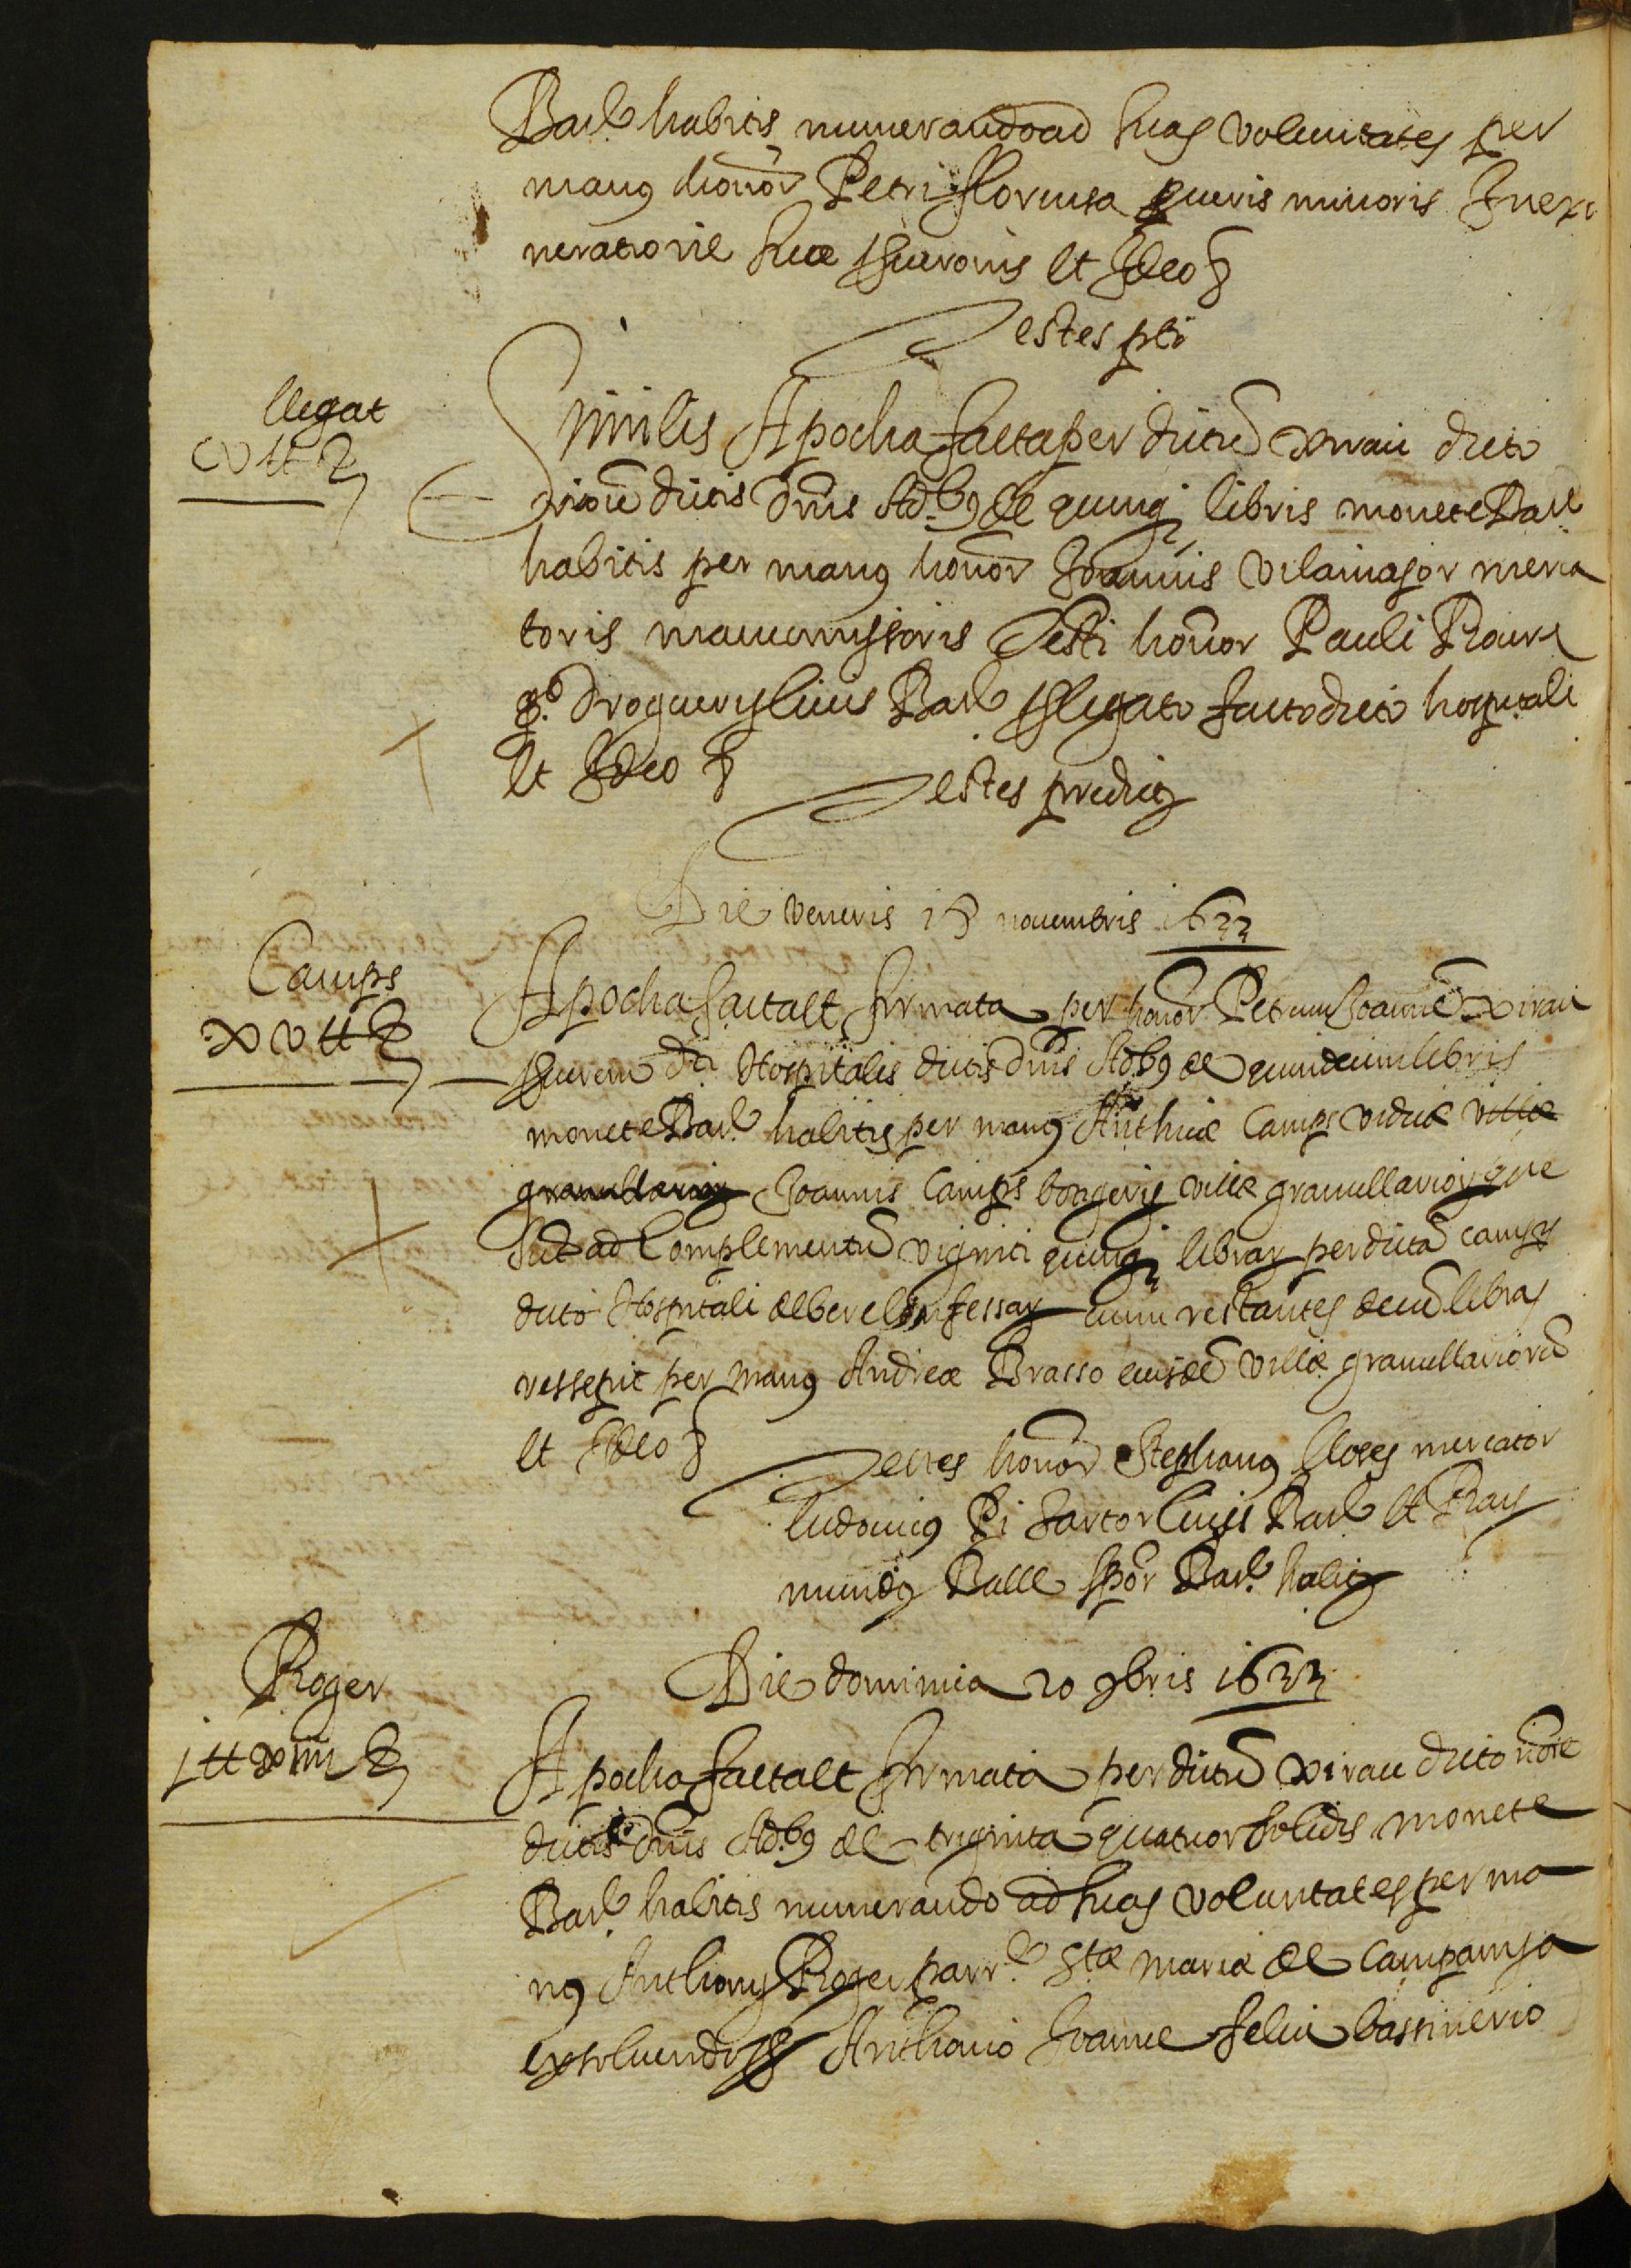 Barᵉ habitis numerando ad suas voluntates per
manꝯ honor Petri florensa pueris minoris
neratione sue et Ideo &
Testes pti
llegat
v ll
Similis Apocha facta per dictũ xirau dicto
noiẽ dictis dñis Adbꝯ de quinqȝ libris monete Barᵉ
habitis per manꝯ honor Joannis vilamajor merca
toris manumissoris Testi honor Pauli Roure
qº. droguerij civis Barᵉ llegato facto dicto hospitali
et Ideo &
Testes predictj
Die veneris 18 novembris 1633
Camps
xv ll
Apocha facta et firmata per honor Petrum Joannẽ xirau
dti Hospitalis dictis dñis Adbꝯ de quindecim libris
monete Barᵉ habitis per manꝯ Anthiçe Camps vidue ville
granullarioȝ Joannis Camps boagerij ville granullarioȝ que
sũt ad Complementũ viginti quinqȝ librar per dictã camps
dicto Hospitali debere confessar cum restantes decẽ libras
ressepit per manꝯ Andreæ Brasso eiusdẽ ville granullariorũ
et Ideo &
Testes honor Stephanꝯ lloses mercator
ludovicꝯ Pi sartor Cives Barᵉ et Ray
mundꝯ Balle spor Barᵉ habitꝫ
Die dominica 20 9bris 1633
Roger
j ll xiiij
Apocha facta et firmata per dictũ xirau dicto noiẽ
dictis dñis Adbꝯ de triginta quatuor solidis monete
Barᵉ habitis numerando ad suas voluntates per ma
nꝯ Anthonij Roger parrᵉ Stæ Mariæ de Campanya
exsolvendo Anthonio Joanne feliu bassinerio